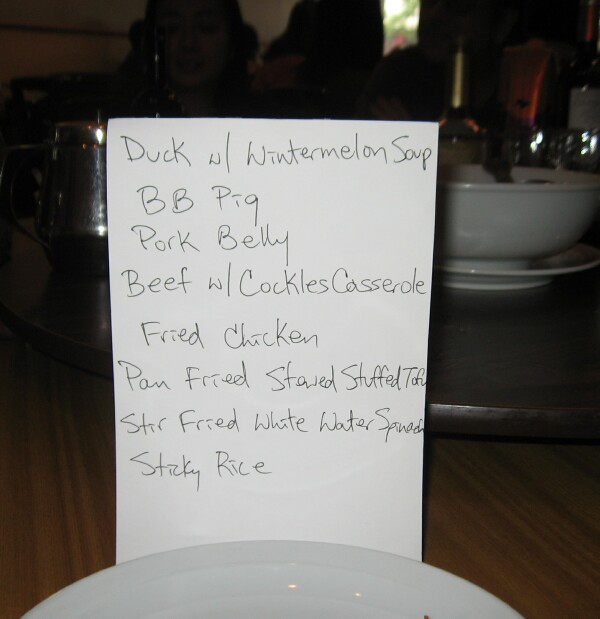 Duck w/ Wintermelon Soup
BB Pig
Pork Belly
Beef w/ Cockles Casserole
Fried Chicken
Pan Fried Stewed Stuffed Tofu
Stir Fried White Water Spinach
Sticky Rice